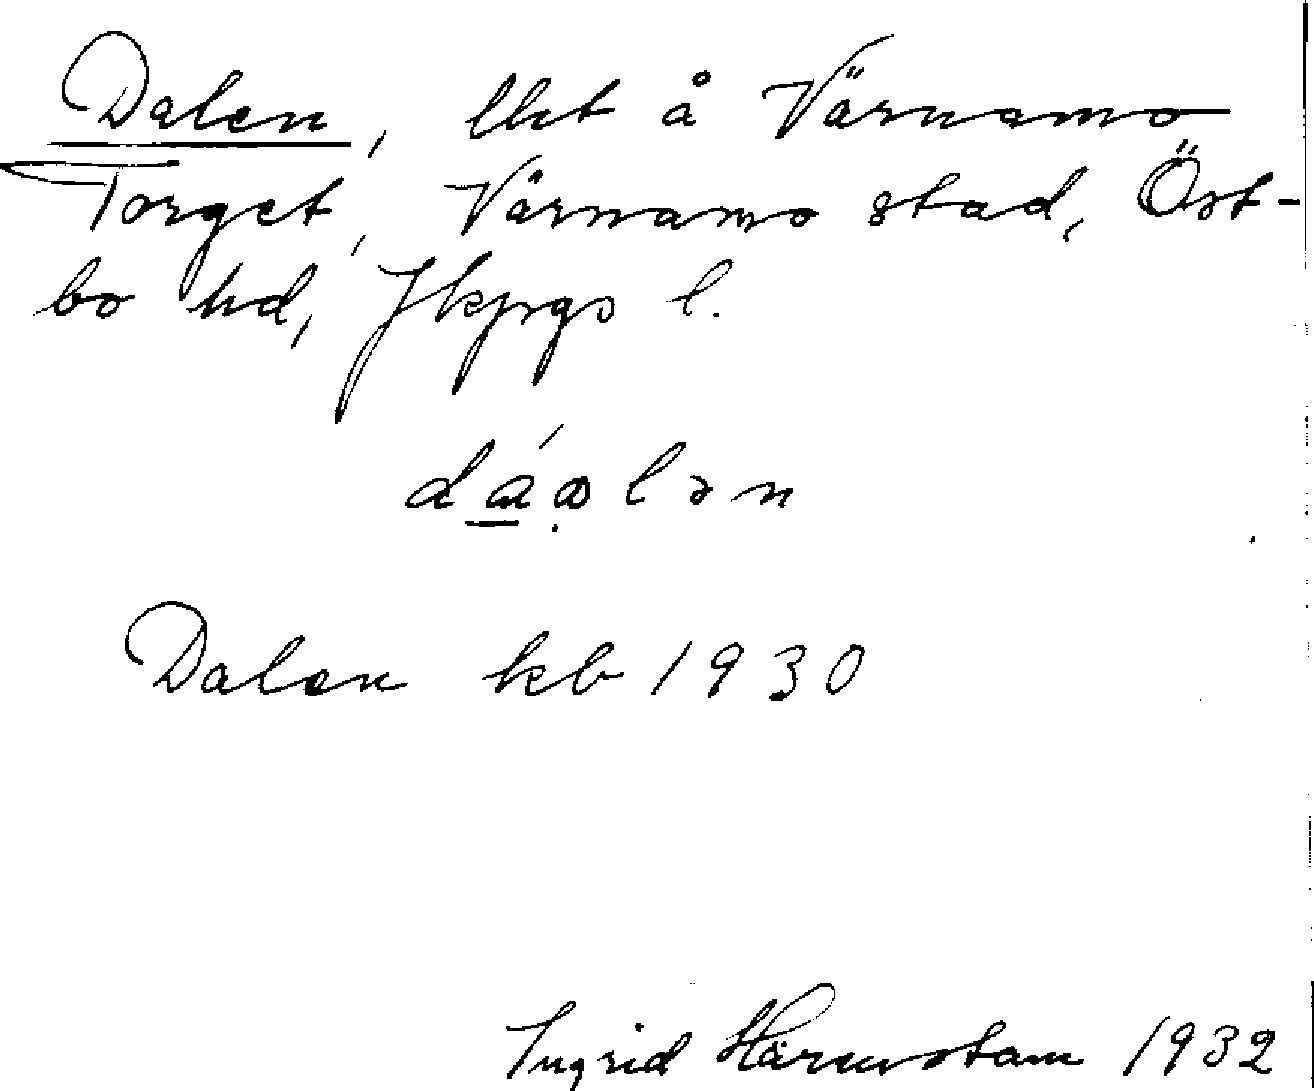 Dalen, lht å Värnamo
Torget, Värnamo stad, Öst-
bo hd, Jkpgs l.
dáɷlən
Dalen kb 1930
Ingrid Härenstam 1932